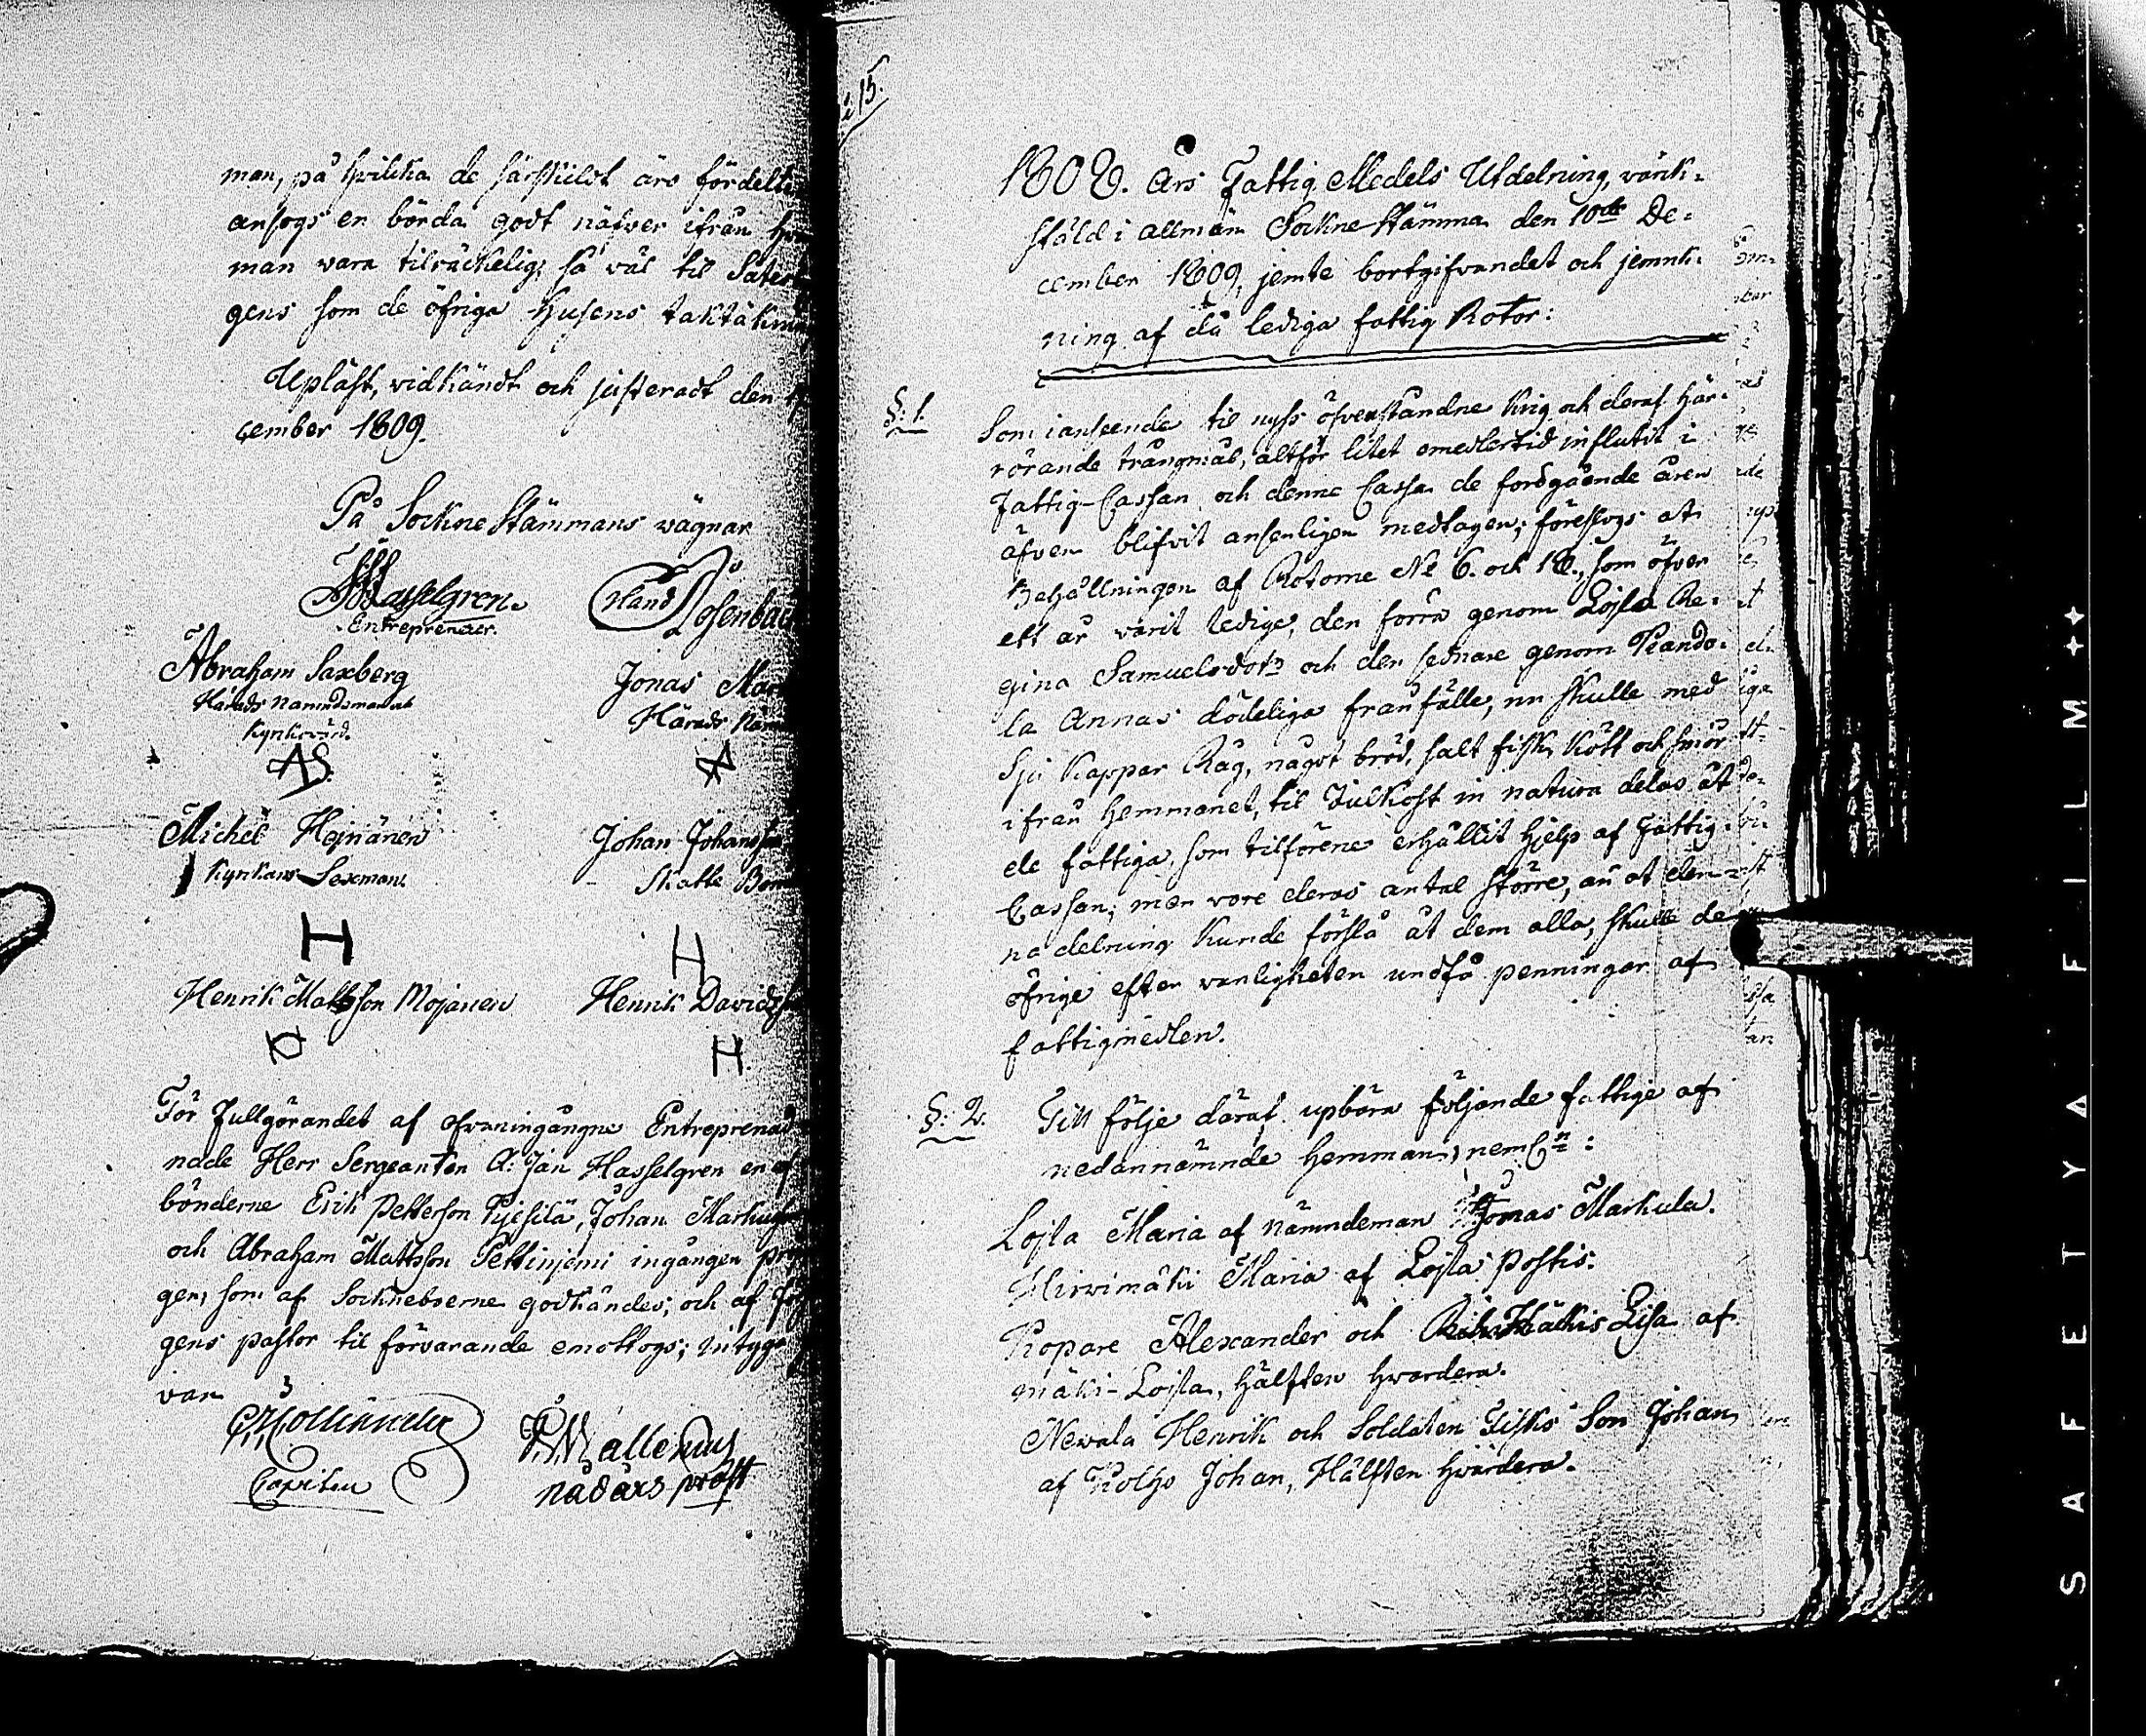 man, på hvilka de särskildt äro fördelte
ansogs en börda godt näfver ifrån
man vara tilräckelig, så väl til
gens som de öfriga Husens
Upläst, vidkändt och justeradt den
cember 1809.
På Sockne Stämmans vägnar
Hasselgren
Entrepreneur.
Abraham Saxberg
Härads Nämndeman och
Kyrkovärd.
AS.
Jonas
Härads
Michel Hejnänen
Kyrkans Sexman
Johan Johansson
Skatte
H
H
Henrik Mattsson Mojanen
Henrik Davidsson
H.
För fullgörandet af ofvaningångne
nade Herr Sergeanten A: Jan Hasselgren en af
bönderne Erik Petterson Pijesilä, Johan
och Abraham Mattsson Pettinjemi ingången
gen, som af Sockneboerne godkändes; och af
gens pastor til förvarande emottogs; intyga
var
Capiten
P. Wallenius
nådårs prost
15.
1808. års Fattig Medels Utdelning, värk-
stäld i allmän Sockne Stämma den 10de De-
cember 1809, jemte bortgifvandet och jemnk-
ning af då lediga fattig Rotor:
§: 1.
Som i anseende til nyss öfverståndne krig och deraf här-
rörande trångmål, altför litet emedlertid influtit i
Fattig-Cassan, och denne Cassa de foregående åren
äfven blifvit ansenligen medtagen; föreslogs at
Behållningen af Rotorne No 6. och 18., som öfver
ett år varit ledige, den förra genom Lojsla Re-
gina Samuelsdotr och den sednare genom Piando-
la Annas dödeliga frånfälle, nu skulle med
Sju Kappar Råg, något bröd, salt fisk, kött och smör
ifrån Hemmanet, til Julkost in natura delas åt
de fattiga, som tilförene erhållit hjelp af Fattig-
Cassan; men vore deras antal större, än at den-
na delning kunde förslå åt dem alla, skulle de
öfrige efter vanligheten undfå penningar af
fattigmedlen.
§: 2. Till följe däraf upbära följande fattige af
nedannämnde Hemman, neml:n:
Lojsla Maria af Nämndeman Jonas Markula.
Hirvimäki Maria af Lojsla Postis.
Ropare Alexander och Lisa af
mäki-Lojsla, hälften hvardera.
Newala Henrik och Soldaten Fisks Son Johan
af Kolho Johan, Hälften hvardera.
SAFETY FILM